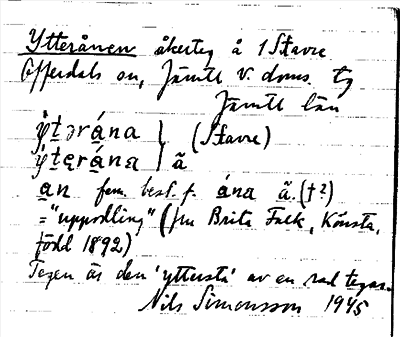 Ytterånen åkerteg å 1 Stavre
Offerdals sn, Jämtl. v. doms. tg
Jämtl län
ỳtərána } (Stavre)
ỳtęrána } ã
an fem. best. f. ána ã. (t²)
= "uppodling" (fru Brita Falk, Kónsta,
född 1892)
Tegen är den 'yttersta' av en rad tegar.
Nils Simonsson 1945